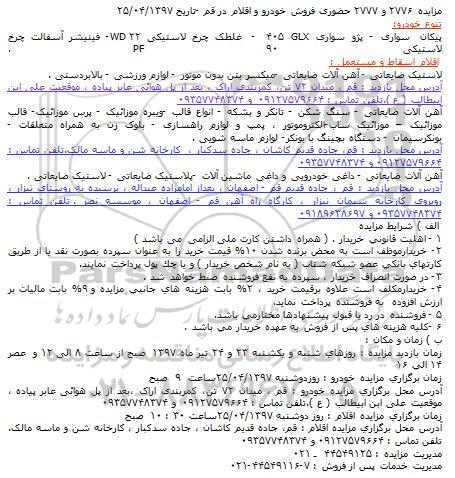 مزایده ۲۷۷۶ و ۲۷۷۷ حضوری فروش خودرو و اقلام در قم -تاریخ ۲۵/۰۴/۱۳۹۷
تنوع خودرو:
پیکان سواری - پژو سواری ۴۰۵ GLX - غلطک چرخ لاستیکی WD ۲۲- فینیشر آسفالت چرخ
لاستیکی ۹۰ PF .
اقلام اسقاط و مستعمل :
لاستیک ضایعاتی - آهن آلات ضایعاتی -میکسر بتن بدون موتور - لوازم ورزشی - بالابردستی .
آدرس محل بازدید : قم ، میدان ۷۲ تن، کمربندی اراک ، بعد از پل هوائی عابر پیاده ، موقعیت علی ابن
ابیطالب ( ع )،تلفن تماس : ۰۹۱۲۷۵۷۹۶۶۴ و ۰۹۳۵۷۷۴۸۳۷۴
آهن آلات ضایعاتی - سنگ شکن - تانکر و بشکه - انواع قالب -ویبره موزائیک - پرس موزائیک- قالب
موزائیک – موزائیک ساب-الکتروموتور ، پمپ و لوازم راهسازی - بلوک زن به همراه متعلقات -
بونکرسیمان - دستگاه بچینگ با بونکر- لوازم ماسه شویی .
آدرس محل بازدید : قم، جاده قدیم کاشان ، جاده سدکبار ، کارخانه شن و ماسه مالک،تلفن تماس :
۰۹۱۲۷۵۷۹۶۶۴ و ۰۹۳۵۷۷۴۸۳۷۴
آهن آلات ضایعاتی - داغی خودرویی و داغی ماشین آلات -پلاستیک ضایعاتی -لاستیک ضایعاتی .
آدرس محل بازدید : قم ، جاده قدیم قم - اصفهان ، بعداز امامزاده عبداله ، نرسیده به روستای نیزار ،
روبروی کارخانه سیمان نیزار ، کارگاه راه آهن قم - اصفهان ، موسسه نصر . تلفن تماس :
۰۹۳۵۷۷۴۸۳۷۴ و ۰۹۱۸۹۶۳۸۶۹۷
الف ) شرایط مزایده
۱ -اهلیت قانونی خریدار . ( همراه داشتن کارت ملی الزامی می باشد )
۲ -خریدارموظف است به محض برنده شدن ۱۰% قیمت خرید را به عنوان سپرده بصورت نقد یا از طریق
کارتهای بانکی عضو شبکه شتاب ( به نام شخص خریدار ) و یا چک پول پرداخت نمایند.
۳ - در صورت انصراف خریدار ، سپرده به نفع فروشنده ضبط خواهد شد .
۴ -خریدارمکلف است علاوه برقیمت خرید ، ۲% بابت هزینه های جانبی مزایده و ۹% بابت مالیات بر
ارزش افزوده به فروشنده پرداخت نماید.
۵ - فروشنده در رد یا قبول پیشنهادها مختارمی باشد.
۶ -کلیه هزینه های پس از فروش به عهده خریدار می باشد .
ب ) زمان و مکان :
زمان بازدید مزایده : روزهای شنبه و یکشنبه ۲۳ و ۲۴ تیر ماه ۱۳۹۷ صبح از ساعت ۸ الی ۱۲ و عصر
۱۴ الی ۱۶
زمان برگزاری مزایده خودرو : روزدوشنبه ۲۵/۰۴/۱۳۹۷ساعت ۹ صبح
آدرس محل برگزاری مزایده خودرو : قم ، میدان ۷۲ تن، کمربندی اراک ،بعد از پل هوائی عابر پیاده ،
موقعیت علی ابن ابیطالب ( ع )،تلفن تماس : ۰۹۱۲۷۵۷۹۶۶۴ و ۰۹۳۵۷۷۴۸۳۷۴
زمان برگزاری مزایده اقلام : روز دوشنبه ۲۵/۰۴/۱۳۹۷ساعت ۳۰ : ۱۰ صبح
آدرس محل برگزاری مزایده اقلام : قم، جاده قدیم کاشان ، جاده سدکبار ، کارخانه شن و ماسه مالک،
تلفن تماس : ۰۹۱۲۷۵۷۹۶۶۴ و ۰۹۳۵۷۷۴۸۳۷۴
مدیریت مزایده : ۴۴۵۴۹۱۲۵ - ۰۲۱
مدیریت خدمات پس از فروش : ۷-۴۴۵۴۹۱۱۶-۰۲۱